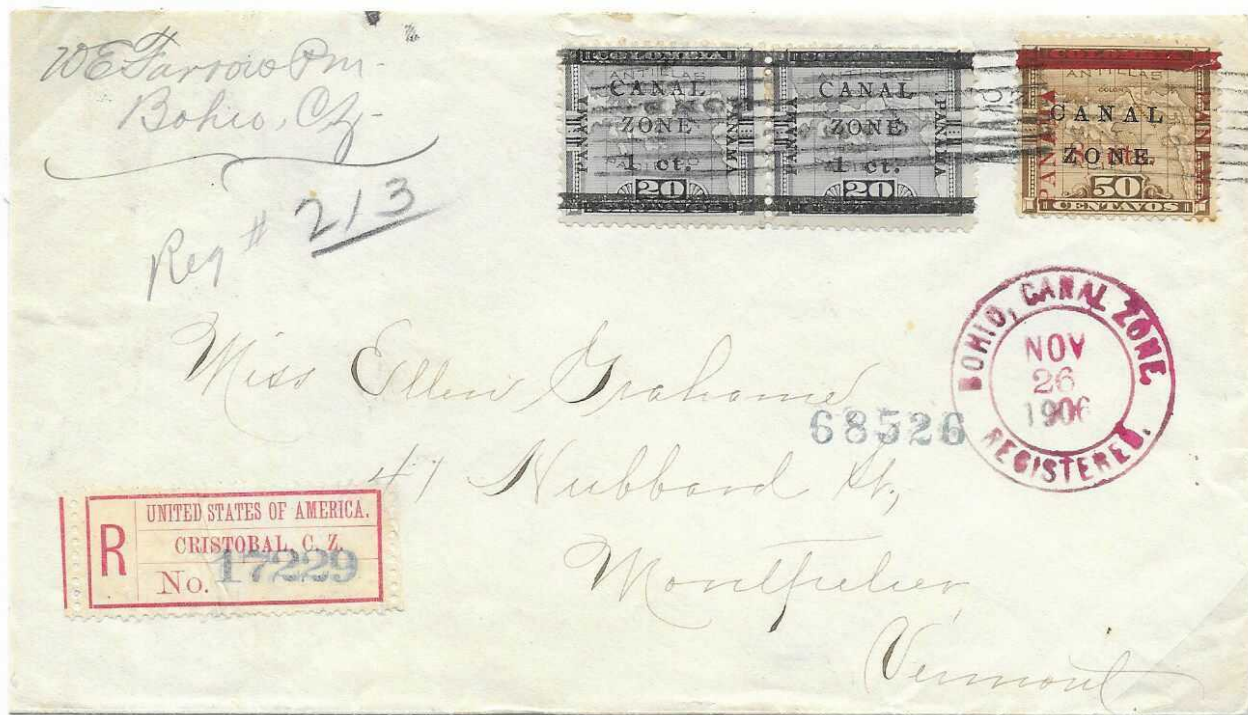 W E Farrow Pm -
Bohio, CZ -
Reg # 213
COLOMBIA
ANTILLAS
CANAL
ZONE
1 ct.
PANAMA
PANAMA
20
ANTILLAS
CANAL
ZONE
1 ct.
PANAMA
PANAMA
20
ANTILLAS
CANAL
ZONE
8 cts.
PANAMA
PANAMA
50
CENTAVOS
BOHIO, CANAL ZONE.
NOV
26
1906
REGISTERED.
Miss Ellen Grahame
68526
47 Hubbard St,
Montpelier,
Vermont
R
UNITED STATES OF AMERICA.
CRISTOBAL, C. Z.
No. 17229